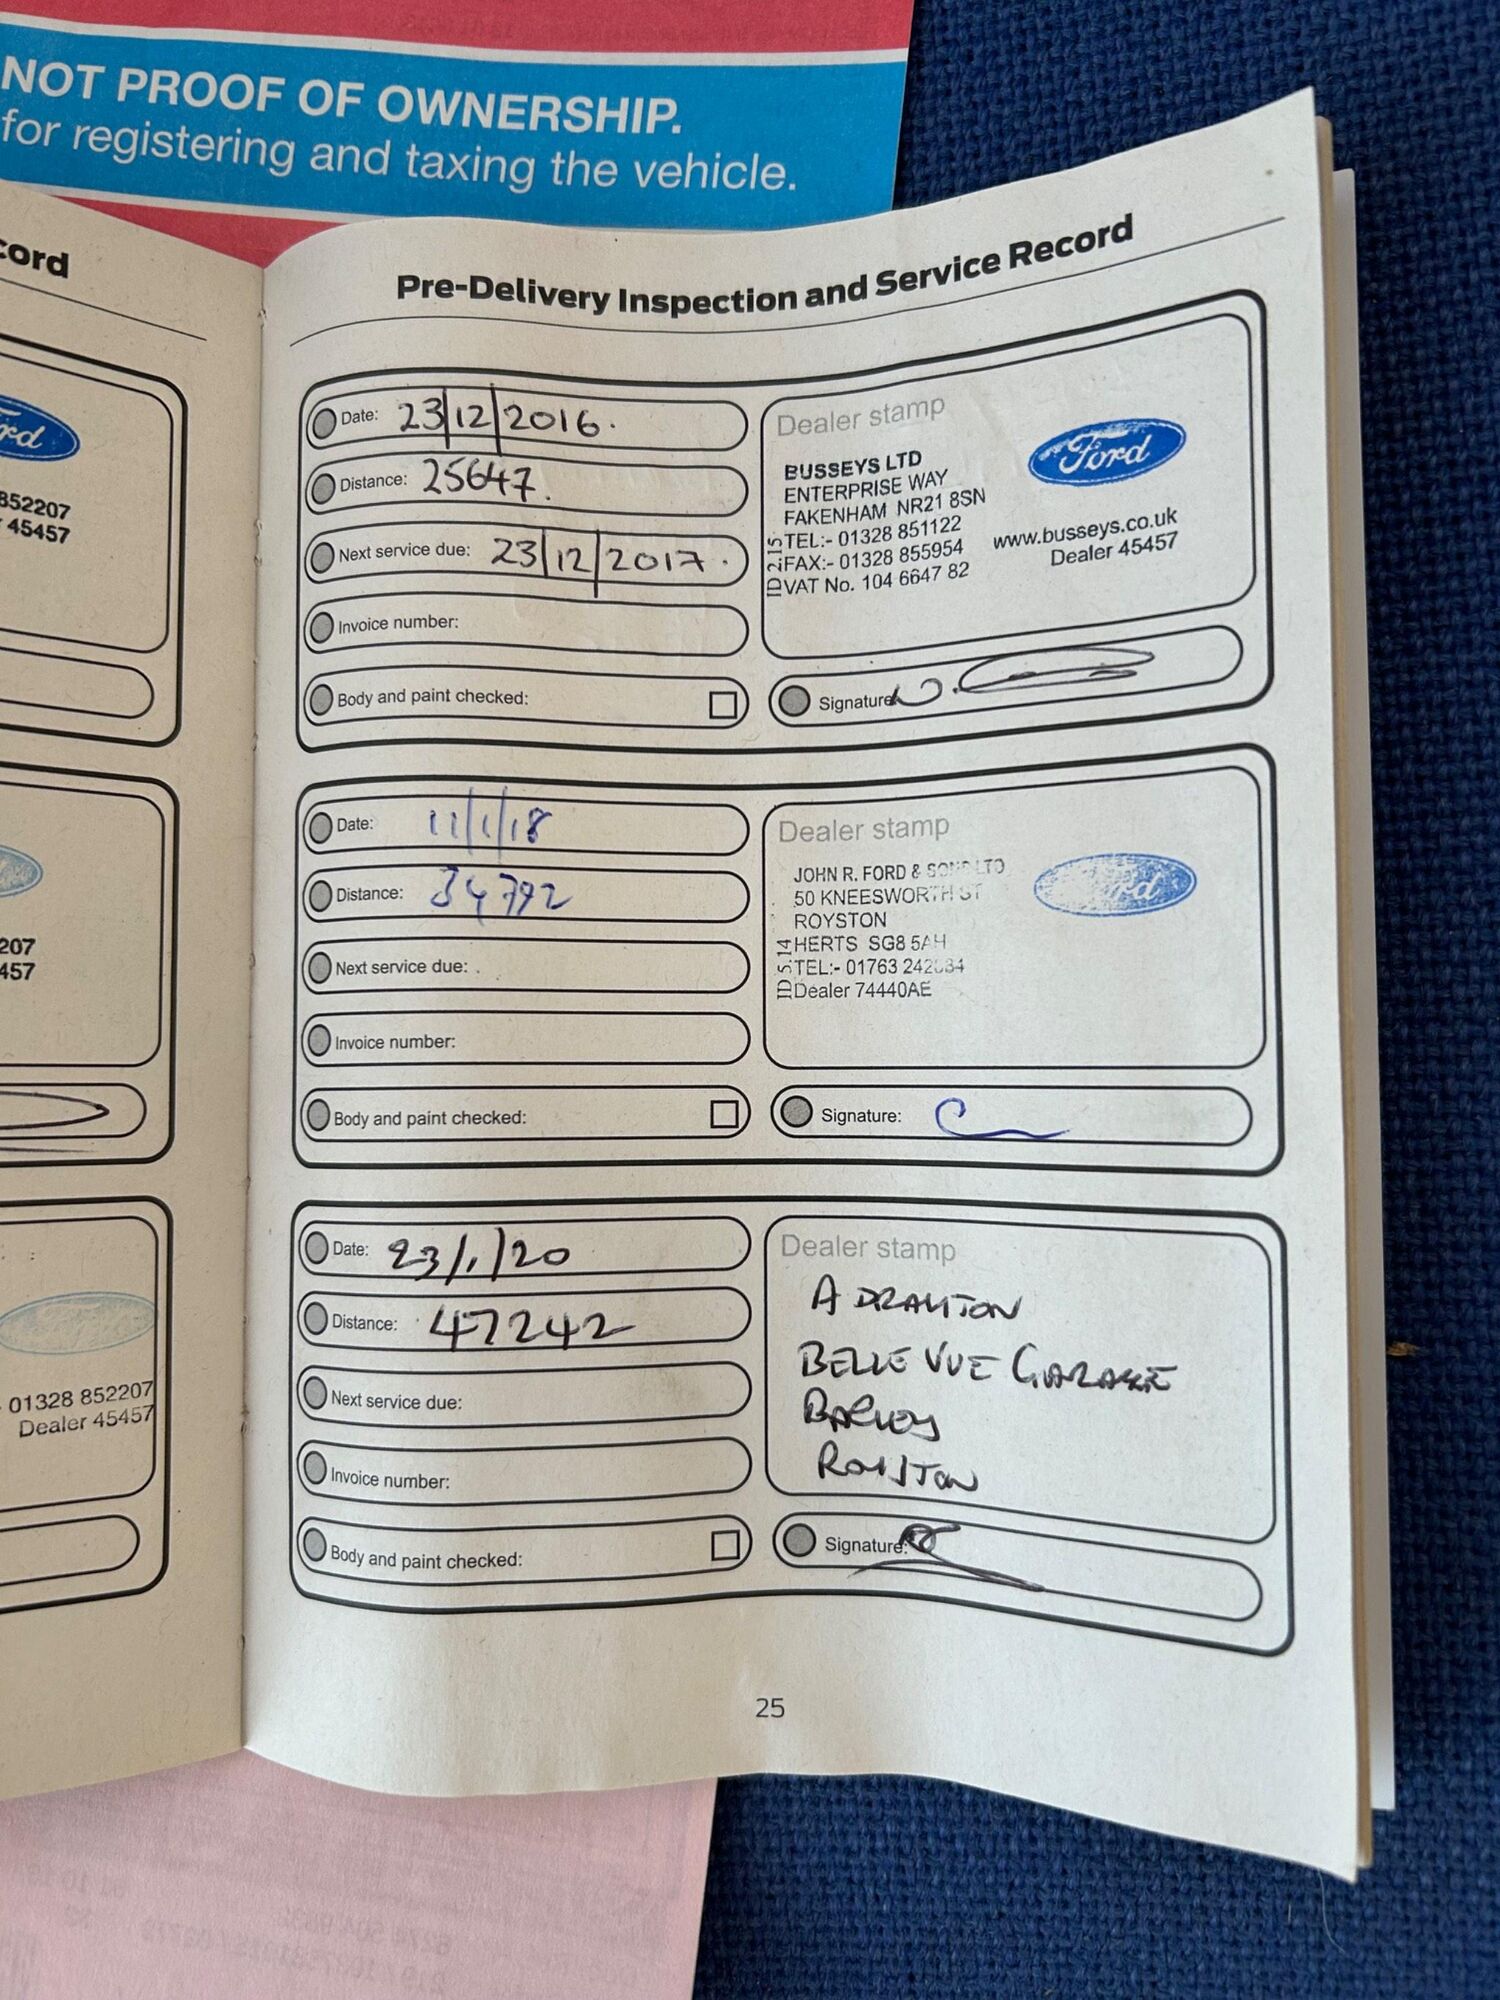 NOT PROOF OF OWNERSHIP.
for registering and taxing the vehicle.
cord
852207
45457
207
457
01328 852207
Dealer 45457
Pre-Delivery Inspection and Service Record
Date: 23/12/2016.
Distance: 25647.
Next service due: 23/12/2017.
Invoice number:
Body and paint checked:
Dealer stamp
Ford
BUSSEYS LTD
ENTERPRISE WAY
FAKENHAM NR21 8SN
TEL:- 01328 851122
FAX:- 01328 855954
VAT No. 104 6647 82
ID 2:15
www.busseys.co.uk
Dealer 45457
Signature
Date: 11/1/18
Distance: 34792
Next service due:
Invoice number:
Body and paint checked:
Dealer stamp
Ford
JOHN R. FORD & SONS LTD
50 KNEESWORTH ST
ROYSTON
HERTS SG8 5AH
TEL:- 01763
Dealer 74440AE
ID 5:14
Signature:
Date: 23/1/20
Distance: 47242
Next service due:
Invoice number:
Body and paint checked:
Dealer stamp
A DRAYTON
BELLE VUE GARAGE
BARLEY
ROYSTON
Signature:
25